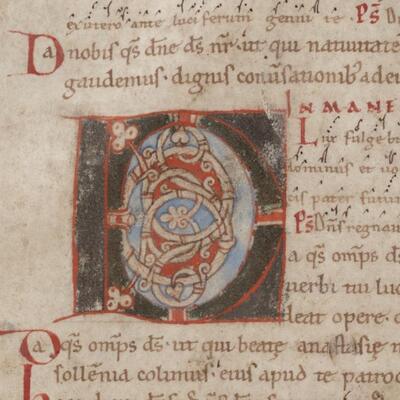 ex utero ante luciferum genui te. Ps Di
Da nobis qs dne ds nr. ut qui natiuitate
gaudemus. dignis conuersationib ad eu
IN MANE
Lux fulgebi
dominus et uo
cis pater futur
Ps Dns regnau
a qs omps ds
uerbi tui luc
leat opere. q
Da qs omps ds. ut qui beatę anastasię m
sollenia colimus. eius apud te patroc